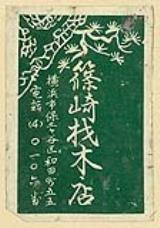 篠崎材木店
横浜市保土ケ谷区和田町五五
電話(4)〇一〇六番